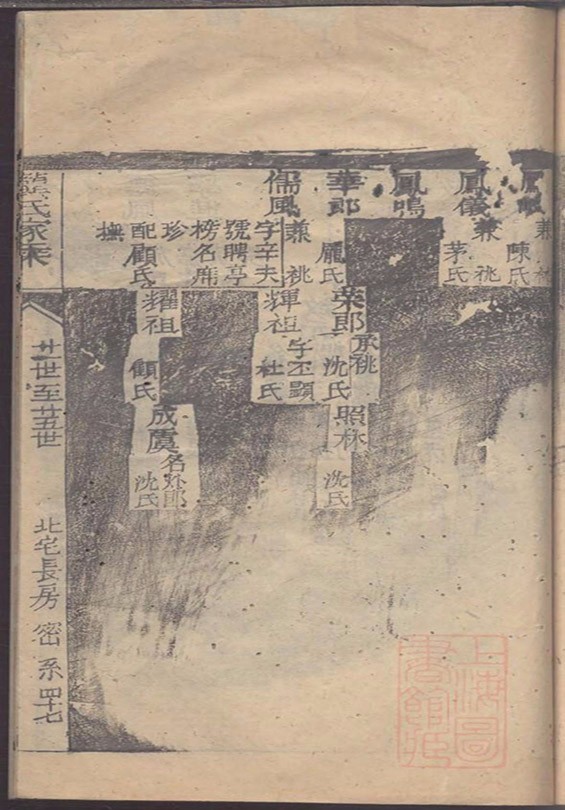 兼祧
陳氏
鳳儀
兼祧
茅氏
鳳鳴
華郎
兼祧
龐氏
儒風
字辛夫
號聘亭
榜名席珍
配顧氏
撫
榮郎
承祧
沈氏
輝祖
字丕顯
杜氏
耀祖
顧氏
照林
沈氏
成慶
沈氏
氏家乘
廿一世至廿五世
北宅長房
密系
四十七
上海圖書館藏